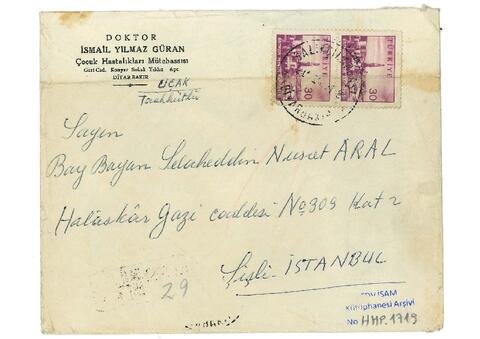 DOKTOR
İSMAİL YILMAZ GÜRAN
Çocuk Hastalıkları Mütehassısı
Gazi Cad. Konyar Sokak Yıldız Apt.
DİYARBAKIR
UÇAK
Taahhütlü
TÜRKİYE
30
30
Sayın
Bay Bayan Selaheddin Nusret ARAL
Halâskâr Gazi caddesi No 309 Kat 2
Şişli - İSTANBUL
29
TDV İSAM
Kütüphanesi Arşivi
No HHP.1719